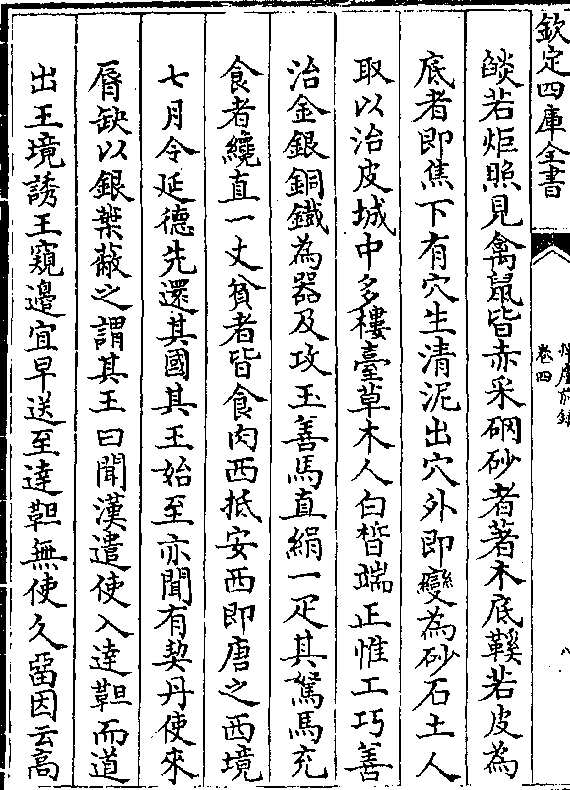 欽定四庫全書
揮麈前錄
卷四
八
燄若炬照見禽鼠皆赤采硇砂者著木底鞵若皮為
底者即焦下有穴生清泥出穴外即變為砂石土人
取以治皮城中多樓臺草木人白皙端正惟工巧善
治金銀銅鐵為器及攻玉善馬直絹一疋其駑馬充
食者纔直一丈貧者皆食肉西抵安西即唐之西境
七月令延德先還其國其王始至亦聞有契丹使來
脣缺以銀葉蔽之謂其王曰聞漢遣使入逹靼而道
出王境誘王窺邊宜早送至逹靼無使久留因云高